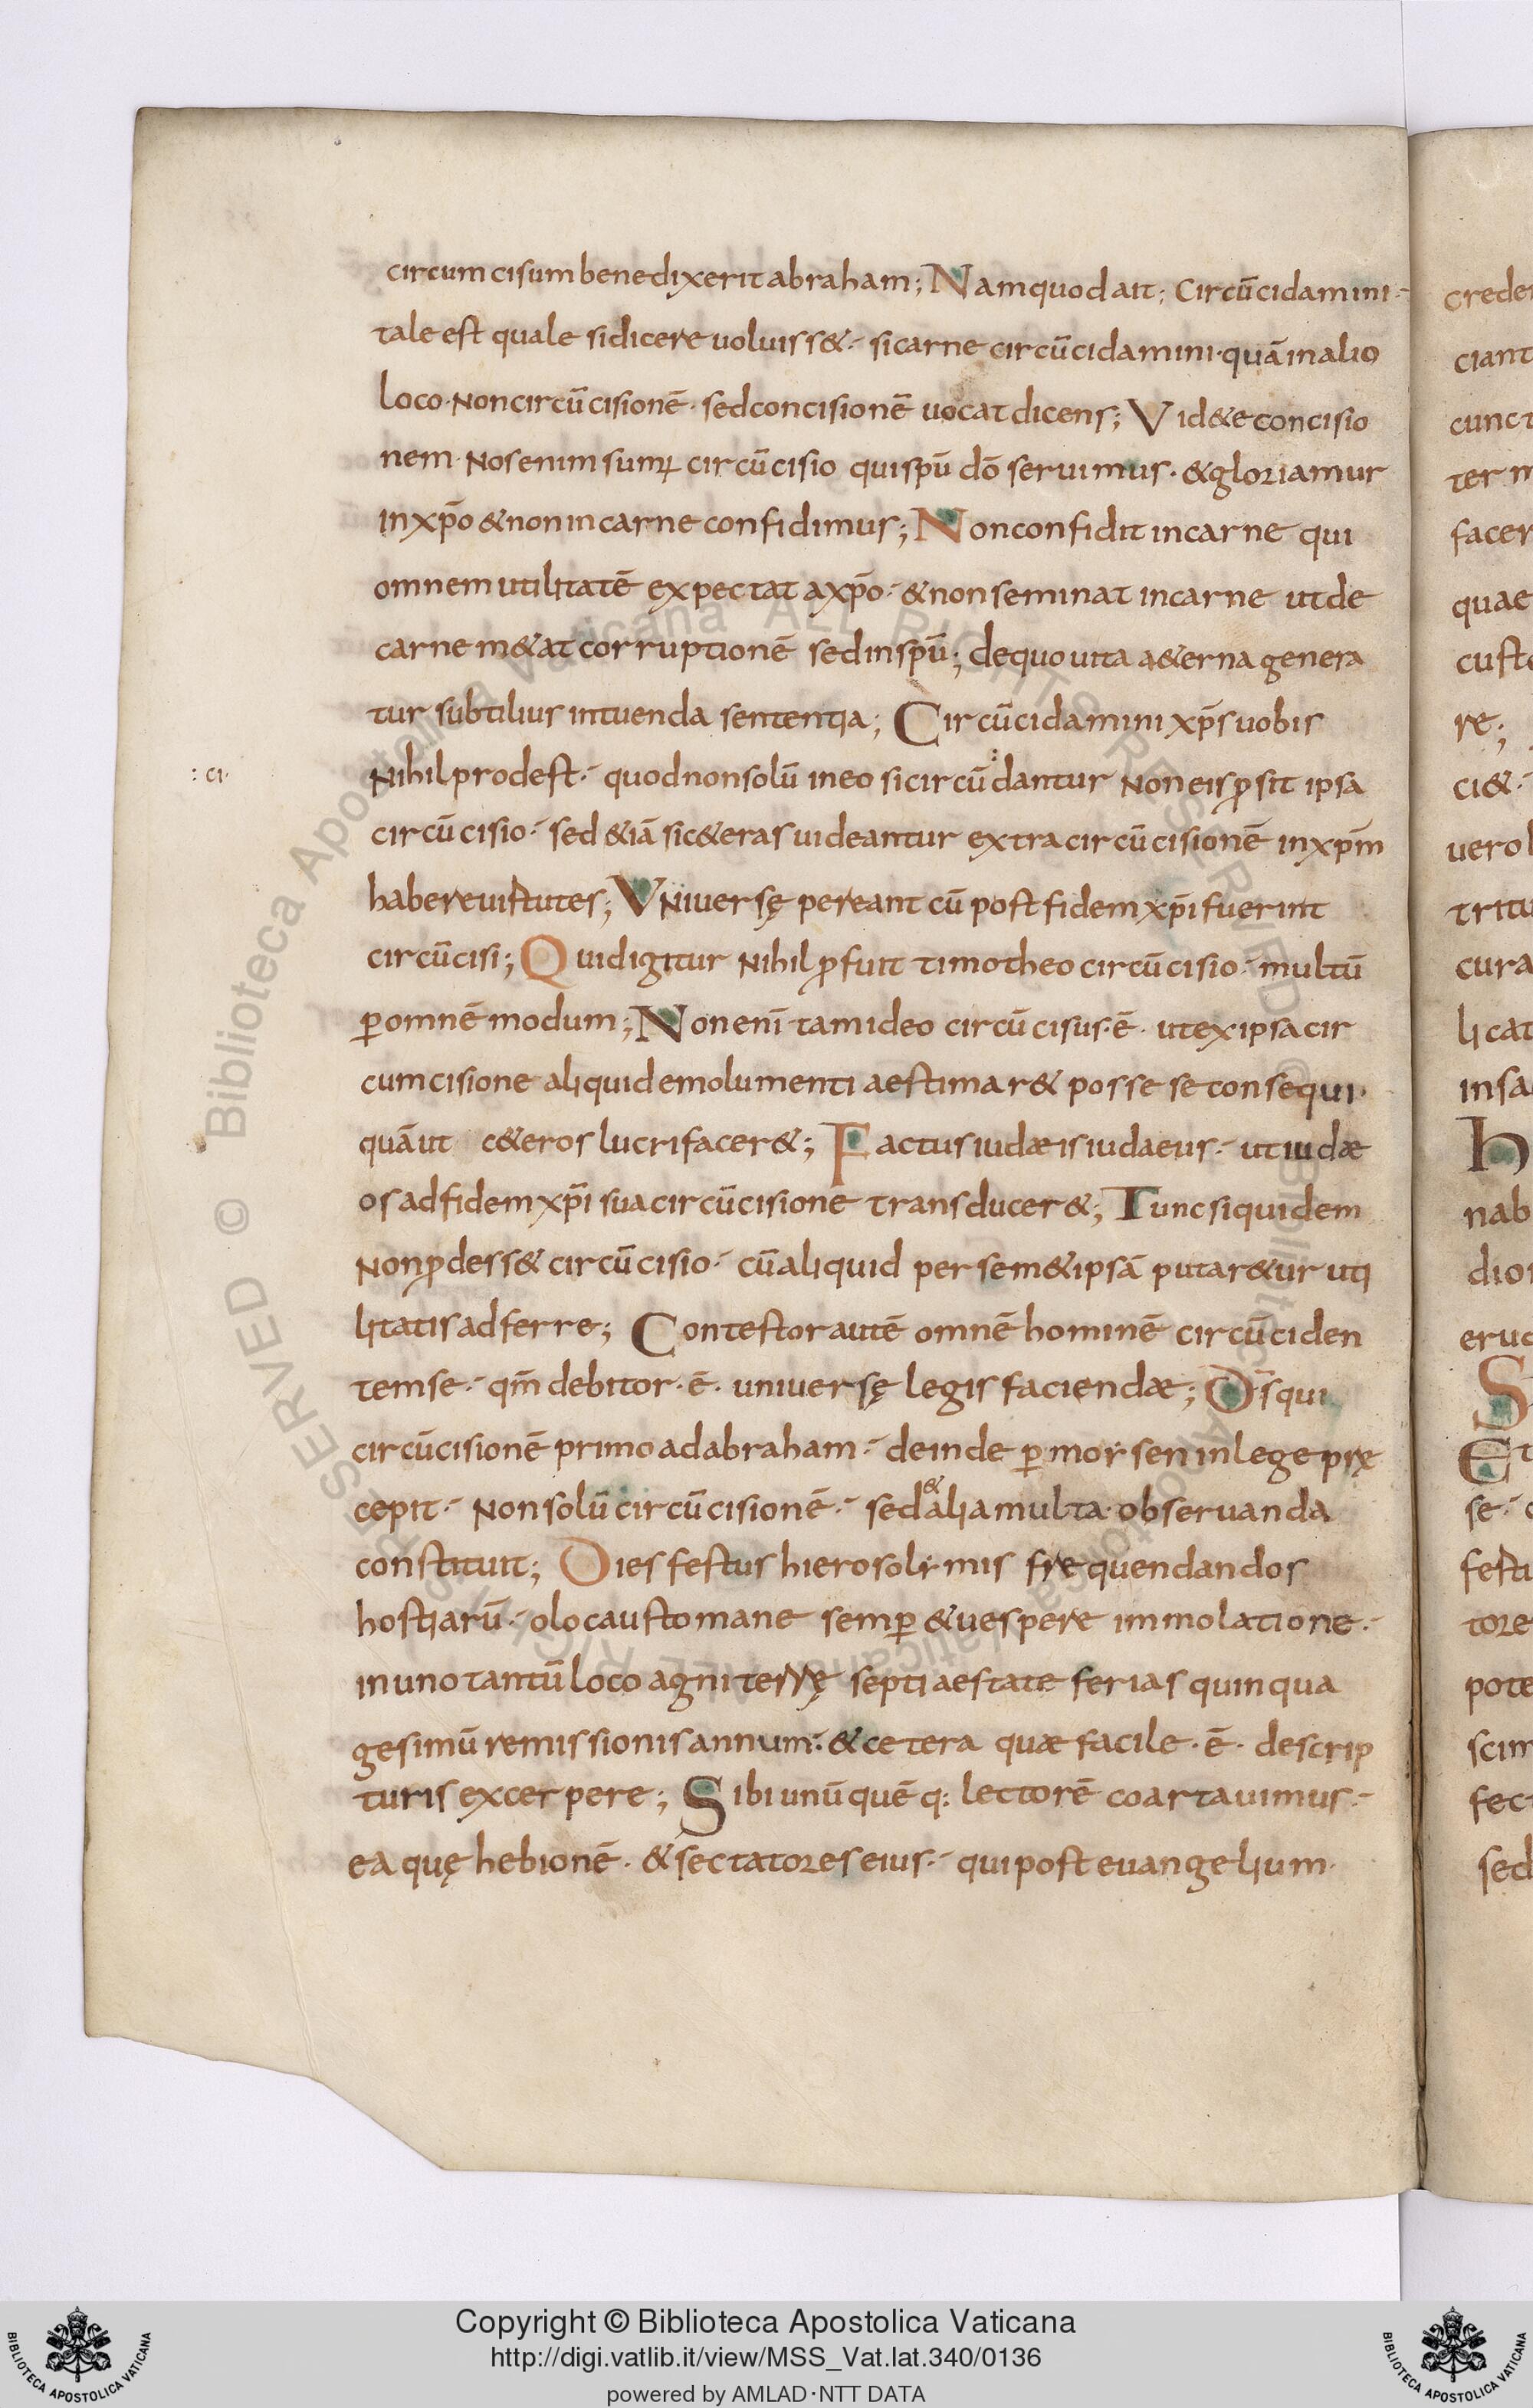 circumcisum benedixerit abraham; Nam quod ait; Circūcidamini·
tale est quale si dicere uoluiss&· si carne circūcidamini· quā in alio
loco· Non circūcisionē· sed concisionē uocat dicens; Vid&e concisio
nem· Nos enim sumꝰ circūcisio qui sp̄u dō seruimus· & gloriamur
in xp̄o & non in carne confidimus; Non confidit in carne qui
omnem utilitatē expectat a xp̄o· & non seminat in carne ut de
carne m&at corruptionē sed in sp̄u; de quo uita a&erna genera
tur subtilius intuenda sententia; Circūcidamini xp̄s uobis
Nihil prodest· quod non solū in eo si circū:dantur Non eis ꝓsit ipsa
: ci·
circūcisio· sed &iā si c&eras uideantur extra circūcisionē in xp̄m
habere uirtutes; Vniuersę pereant cū post fidem xp̄i fuerint
circūcisi; Quid igitur Nihil ꝓfuit timotheo circūcisio· multū
ꝑ omnē modum; Non enī tam ideo circūcisus·ē· ut ex ipsa cir
cumcisione aliquid emolumenti aestimar& posse se consequi·
quā ut c&eros lucrifacer&; Factus iudæis iudaeus· ut iudæ
os ad fidem xp̄i sua circūcisione transducer&; Tunc siquidem
Non ꝓdess& circūcisio· cū aliquid per sem&ipsā putar&ur uti
litatis adferre; Contestor autē omnē hominē circūciden
tem se· qm̄ debitor·ē· uniuersę legis faciendæ; D̄s qui
circūcisionē primo ad abraham· deinde ꝑ moẏsen in lege prę
cepit· Non solū circūcisionē· sed & alia multa· obseruanda
constituit; Dies festus hierosolẏmis frequendandos
hostiarū· olocausto mane semꝑ & uespere immolatione·
in uno tantū loco agni terrę septi aestate ferias quinqua
gesimū remissionis annum· & cetera quæ facile·ē· descrip
turis excerpere; Sibi unūquēq: lectorē coartauimus·
ea quę hebionē· & sectatores eius· qui post euangelium·
creder
ciant
cunct
ter m
facer
quae
custo
re;
ci&·
uero
tritu
cura
licat
insa
h
nab
dio
eruc
S
Et
se·
festi
tore
pote
scim
fec
sed
Copyright © Biblioteca Apostolica Vaticana
http://digi.vatlib.it/view/MSS_Vat.lat.340/0136
powered by AMLAD·NTT DATA
BIBLIOTECA APOSTOLICA VATICANA
BIBLIOTECA APOSTOLICA VATICANA